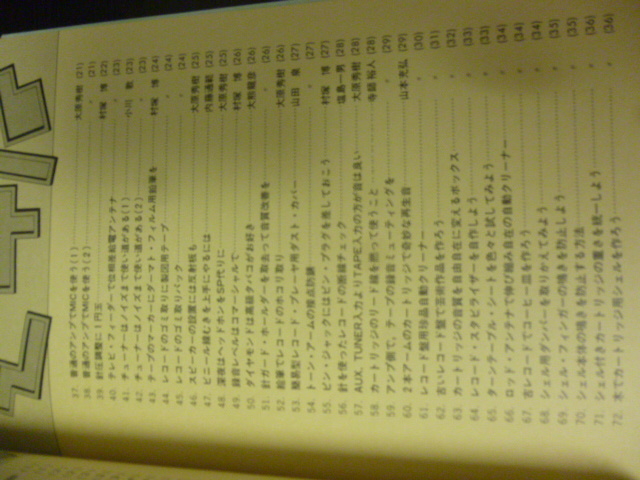 37. 普通のアンプでMICを使う(1) 大原秀樹 (21)
38. 普通のアンプでMICを使う(2) 〃 (21)
39. 針圧調整に1円玉 村塚 博 (22)
40. テレビ・フィーダーで位相差給電アンテナ 〃 (23)
41. チューナーはノイズまで使い道がある(1) 小川 敦 (23)
42. チューナーはノイズまで使い道がある(2) 〃 (23)
43. テープのマーカーにダーマト・フィルム用鉛筆を 村塚 博 (24)
44. レコードのゴミ取りに製図用テープ 〃 (24)
45. レコードのゴミ取りパック 〃 (24)
46. スピーカーの設置には反射板も 大原秀樹 (25)
47. ビニール線むきを上手にやるには 内藤 (25)
48. 深夜はヘッドホンをSP代りに 大原秀樹 (25)
49. 録音レベルはコマーシャルで 村塚 博 (26)
50. ダイヤモンドは高級タバコがお好き 大熊 (26)
51. 針ガード・ホールダーを取去って音質改善を 〃 (26)
52. 絵筆でレコードのホコリ取り 大原秀樹 (26)
53. 簡易型レコード・プレーヤ用ダスト・カバー 山田 (27)
54. トーン・アームの接点防錆 〃 (27)
55. ピン・ジャックにはピン・プラグを差しておこう 村塚 博 (27)
56. 針を使ったレコードの断線チェック 塩島一男 (28)
57. AUX, TUNER入力よりTAPE入力の方が音は良い 大原秀樹 (28)
58. カートリッジのリード線を撚って使うこと 寺師裕人 (28)
59. アンプ側で、テープの録音ミューティングを 〃 (29)
60. 2本アームのカートリッジで奇妙な再生音 山本充弘 (29)
61. レコード盤用珍品自動クリーナー 〃 (30)
62. 古いレコード盤で芸術作品を作ろう 〃 (31)
63. カートリッジの音質を自由自在に変えるボックス 〃 (32)
64. レコード・スタビライザーを自作しよう 〃 (33)
65. ターンテーブル・シートを色々と試してみよう 〃 (33)
66. ロッド・アンテナで伸び縮み自在の自動クリーナー 〃 (34)
67. 古レコードでコーヒー皿を作ろう 〃 (34)
68. シェル用ダンパーを張りかえてみよう 〃 (34)
69. シェル・フィンガーの鳴きを防止しよう 〃 (35)
70. シェル本体の鳴きを防止する方法 〃 (35)
71. シェル付きカートリッジの重さを統一しよう 〃 (36)
72. 木でカートリッジ用シェルを作ろう 〃 (36)